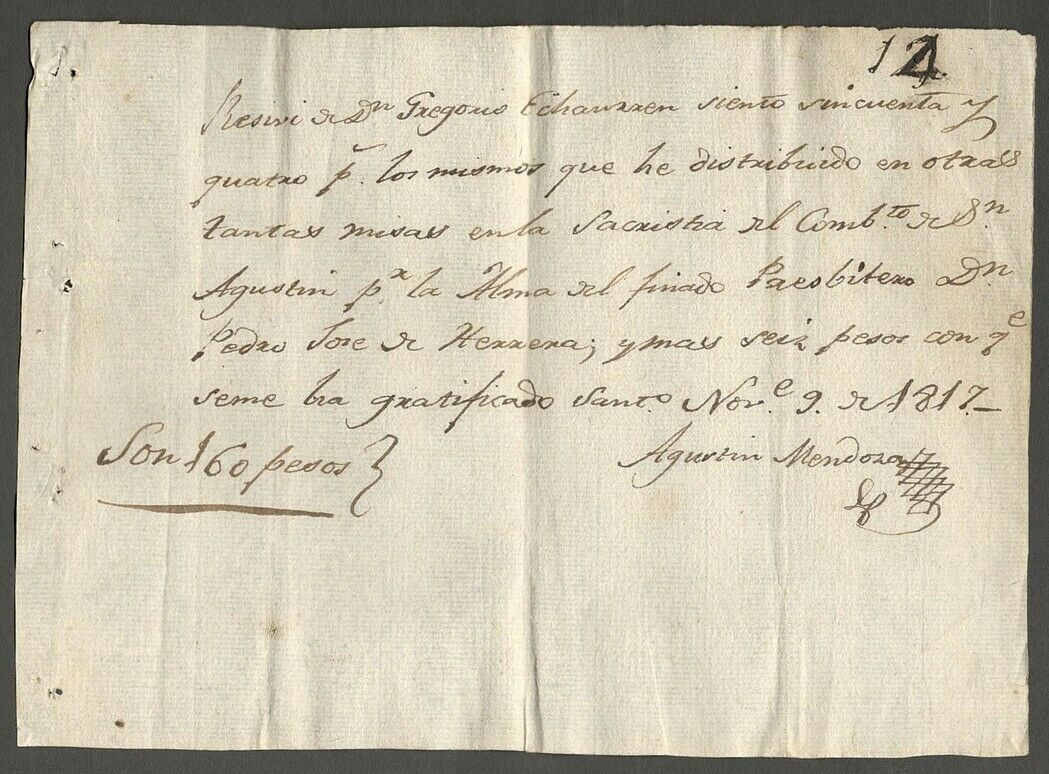 12
Resivi de Dn Gregorio Echaurren siento sincuenta y
quatro p.s los mismos que he distribuido en otras
tantas misas en la Sacristia del Comb.to de Sn
Agustin p.r la Alma del finado Presbitero Dn
Pedro Jose de Herrera; y mas seiz pesos con qe
seme ha gratificado Sant.o Nov.e 9. de 1817.
Son 160 pesos }
Agustin Mendoza